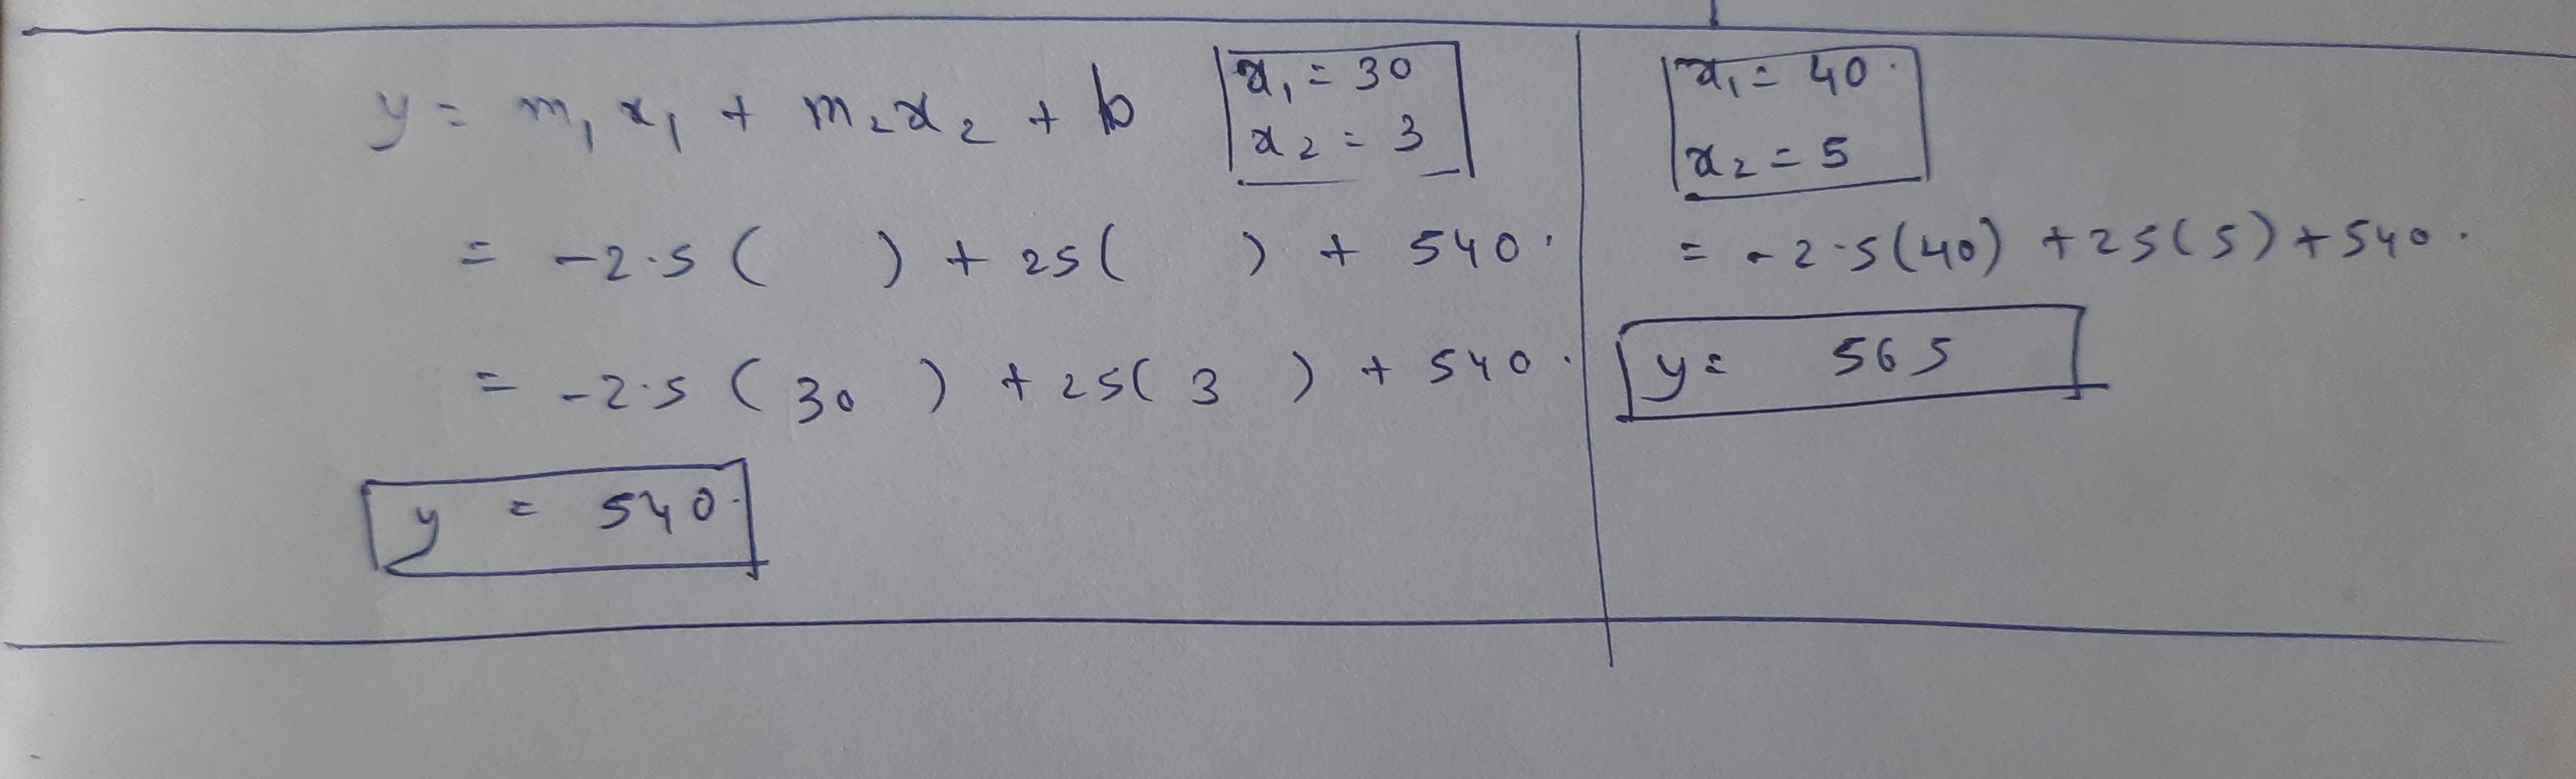 y = m₁ x₁ + m₂x₂ + b
x₁ = 30
x₂ = 3
= -2.5 (   ) + 25(   ) + 540.
= -2.5 ( 30 ) + 25( 3 ) + 540.
y = 540.
x₁ = 40.
x₂ = 5
= -2.5(40) + 25(5) + 540.
y = 565